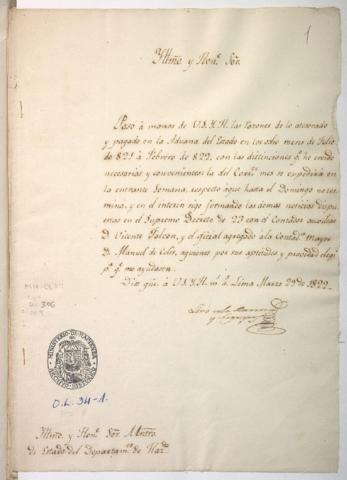 1
Yltmo. y Honl. Sor.
Paso à manos de V.S.Y.H. las razones de lo atesorado
y pagado en la Aduana del Estado en los ocho meses de Julio
de 821 à Febrero de 822, con las distinciones q.e he creido
necesarias y convenientes: la del Corr.te mes se expedirá en
la entrante semana, respecto à que hasta el Domingo no ter-
mina, y en el interin sigo formando las demas noticias dispu-
estas en el Supremo Decreto de 23 con el Contador auxiliar
D. Vicente Falcon, y el oficial agregado à la Contad.a mayor
D. Manuel de Celis, aquienes por sus aptitudes y probidad elegi
p.a q.e me ayudasen.
Dios gue. à V.S.Y.H. m.s a.s Lima Marzo 29 de 1822.
MINISTERIO DE HACIENDA
ARCHIVO HISTORICO
O.L. 34-1.
Yltmo. y Honl. Sor. Mntro.
de Estado del Departam.to de Haz.da